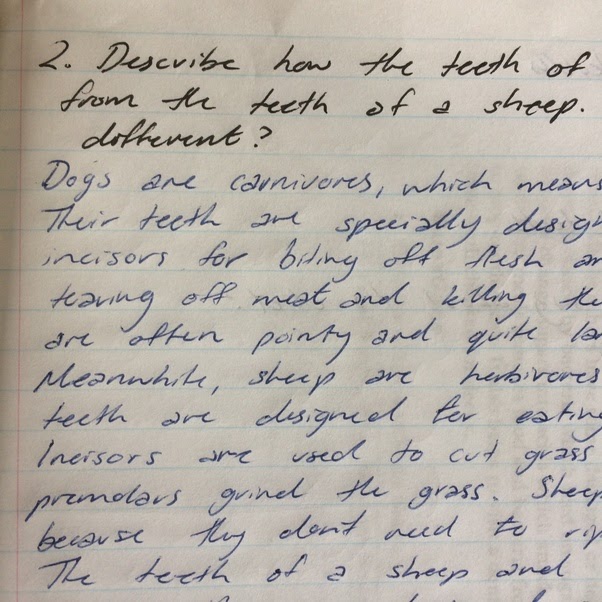 2. Describe how the teeth of
from the teeth of a sheep.
different?
Dogs are carnivores, which means
Their teeth are specially design
incisors for biting off flesh an
tearing off meat and killing the
are often pointy and quite lar
Meanwhile, sheep are herbivores
teeth are designed for eating
Incisors are used to cut grass
premolars grind the grass. Sheep
because they don't need to rip
The teeth of a sheep and